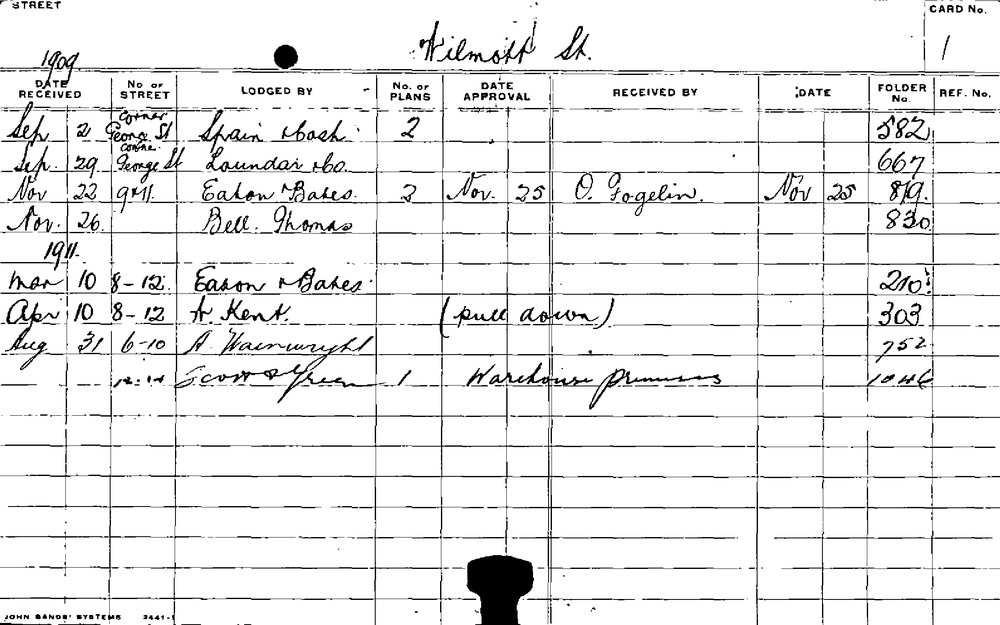 STREET
CARD No.
Wilmott St. 1
1909
DATE RECEIVED No OF STREET LODGED BY No. OF PLANS DATE APPROVAL RECEIVED BY DATE FOLDER No. REF. No.
Sep 2 Corner George St Spain & Cosh 2 582
Sep. 29 corner George St Loundar & Co. 667
Nov 22 9 & 11. Eaton & Bates. 2 Nov. 25 O. Fogelin. Nov 25 819.
Nov. 26. Bell. Thomas 830
1911.
Mar 10 8-12. Eaton & Bates. 210
Apr 10 8-12 A Kent. (pull down) 303
Aug 31 6-10 A. Wainwright 752
12-14 Scott & Green 1 Warehouse premises 1046
JOHN SANDS' SYSTEMS 2441-1